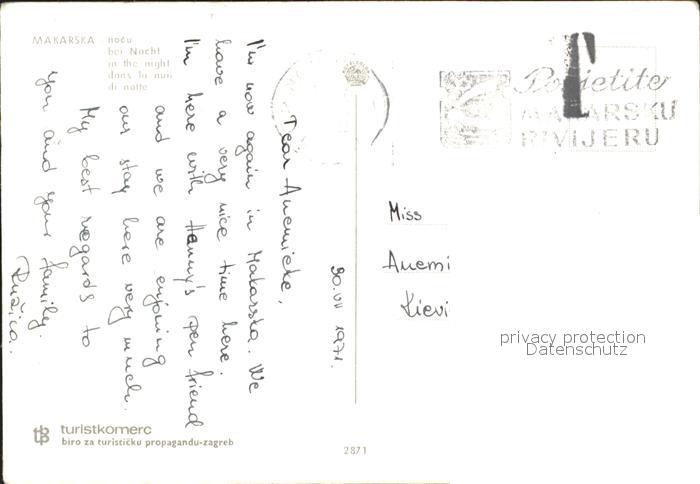 MAKARSKA noću
bei Nacht
in the night
dans la nuit
di notte
30.VII 1971.
Dear Anemieke,
I'm now again in Makarska. We
have a very nice time here.
I'm here with Henny's pen friend
and we are enjoning
our stay here very much.
My best regards to
you and your family.
Ružica.
Posjetite
MAKARSKU
RIVIJERU
T
Miss
Anemi
Kievi
privacy protection
Datenschutz
turistkomerc
biro za turističku propagandu-zagreb
2871